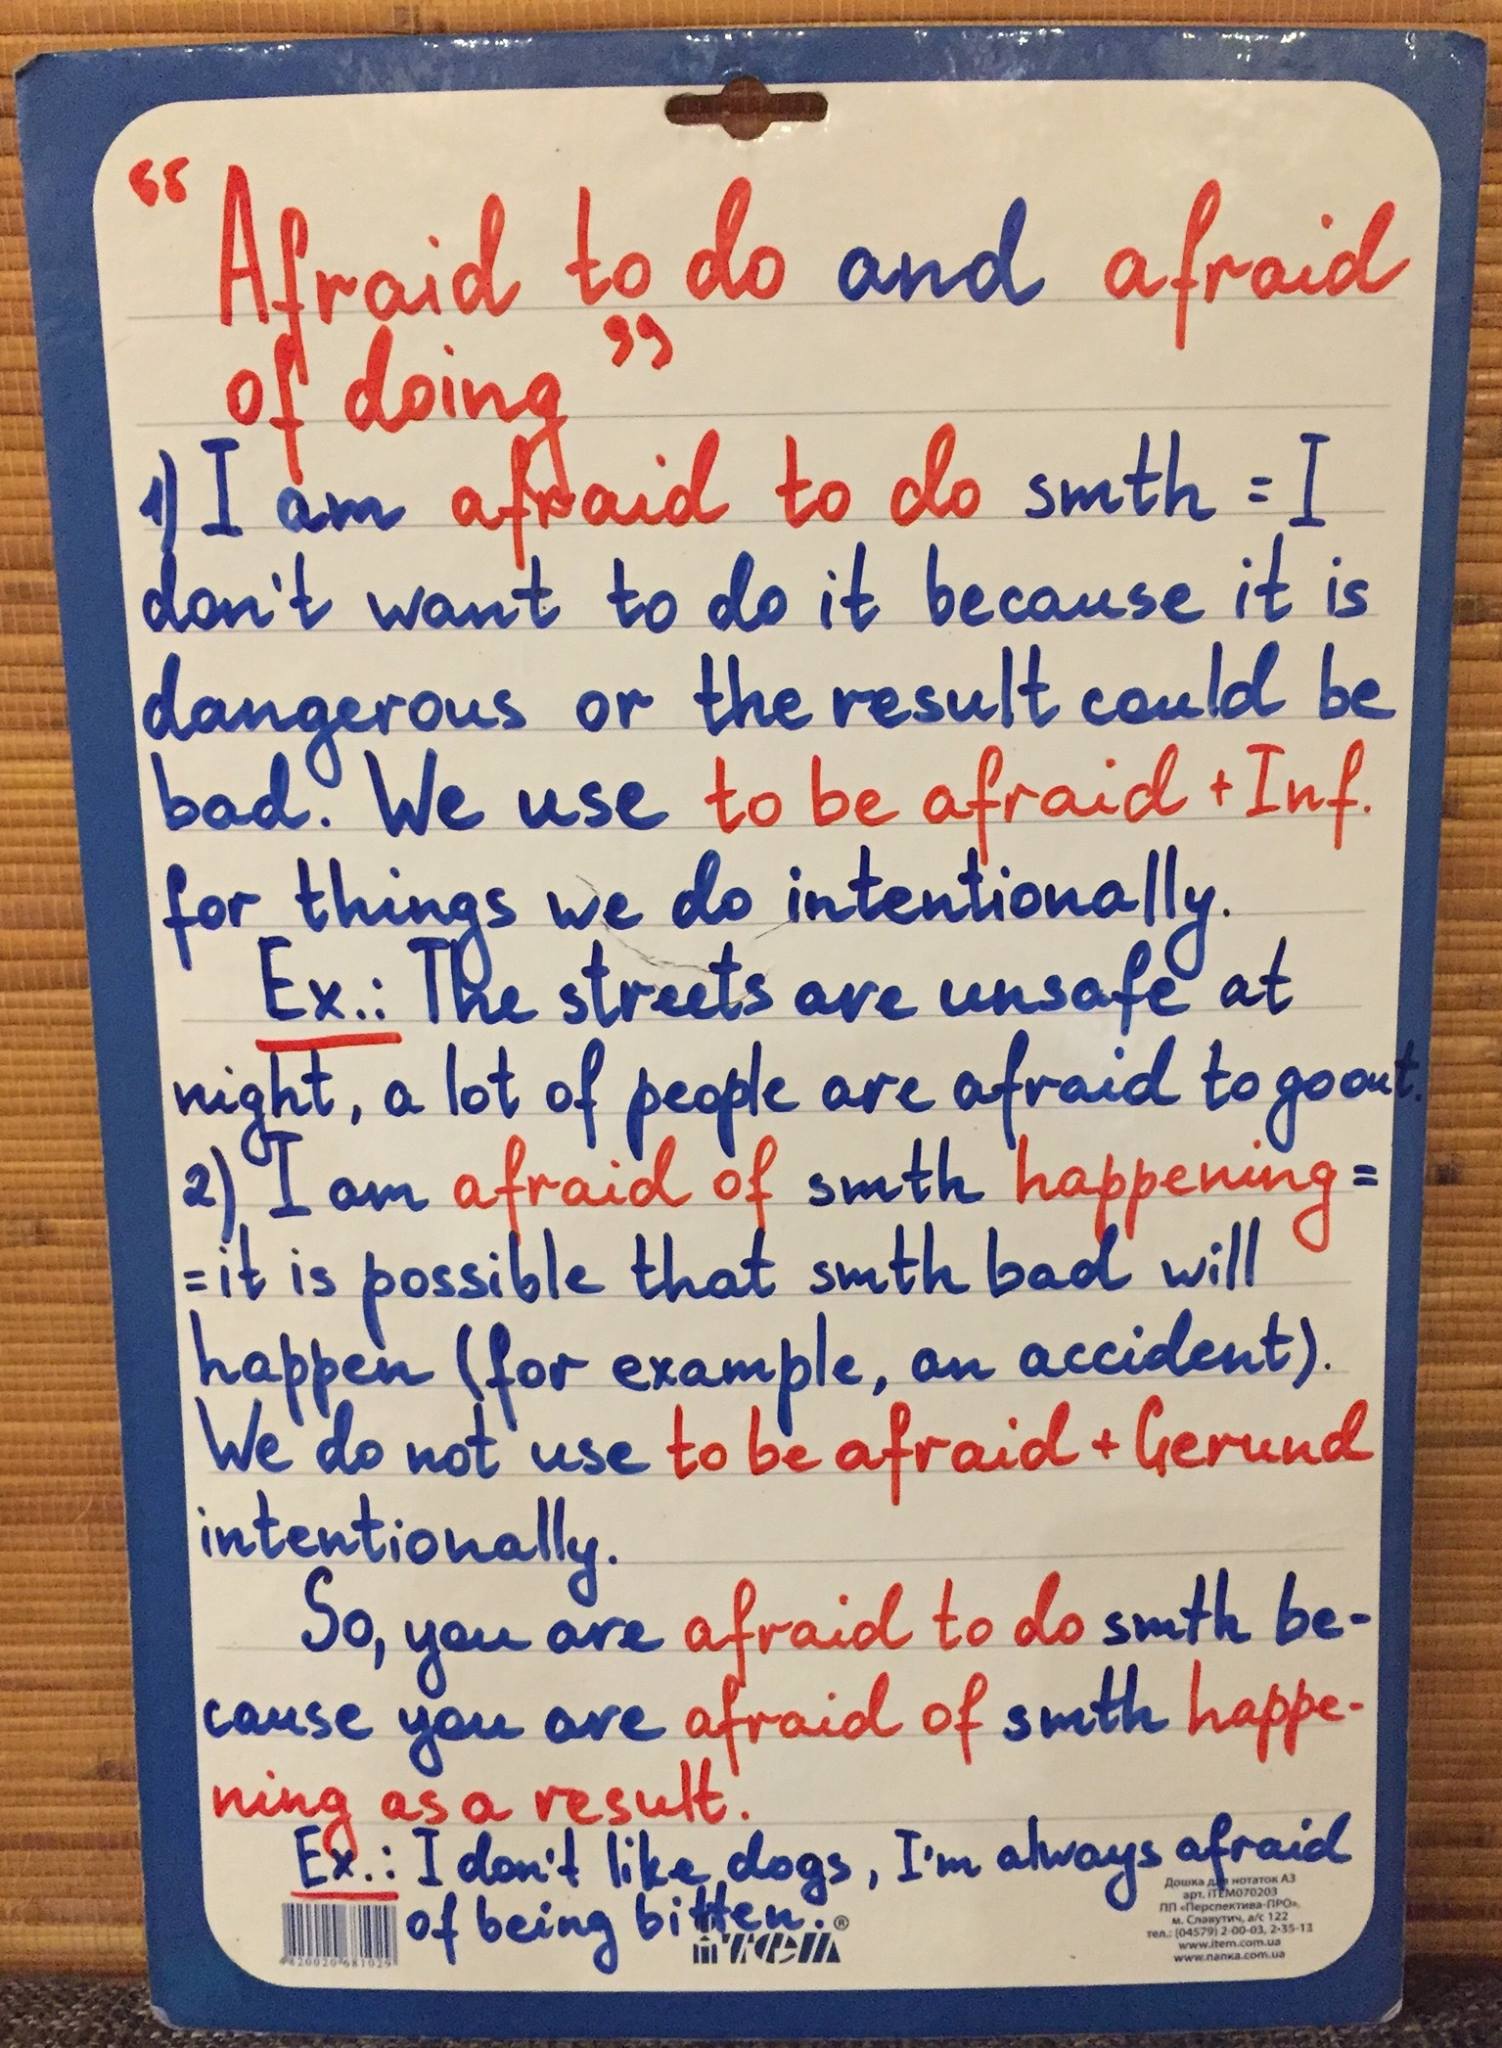 “Afraid to do and afraid
of doing”
1) I am afraid to do smth = I
don't want to do it because it is
dangerous or the result could be
bad. We use to be afraid + Inf.
for things we do intentionally.
Ex.: The streets are unsafe at
night, a lot of people are afraid to go out.
2) I am afraid of smth happening =
= it is possible that smth bad will
happen (for example, an accident).
We do not use to be afraid + Gerund
intentionally.
So, you are afraid to do smth be-
cause you are afraid of smth happe-
ning as a result.
Ex.: I don't like dogs, I'm always afraid
of being bitten.
iTEM®
Дошка для нотаток А3
арт. iTEM070203
ПП «Перспектива-ПРО»,
м. Славутич, а/с 122
тел.: (04579) 2-00-03, 2-35-13
www.item.com.ua
www.папка.com.ua